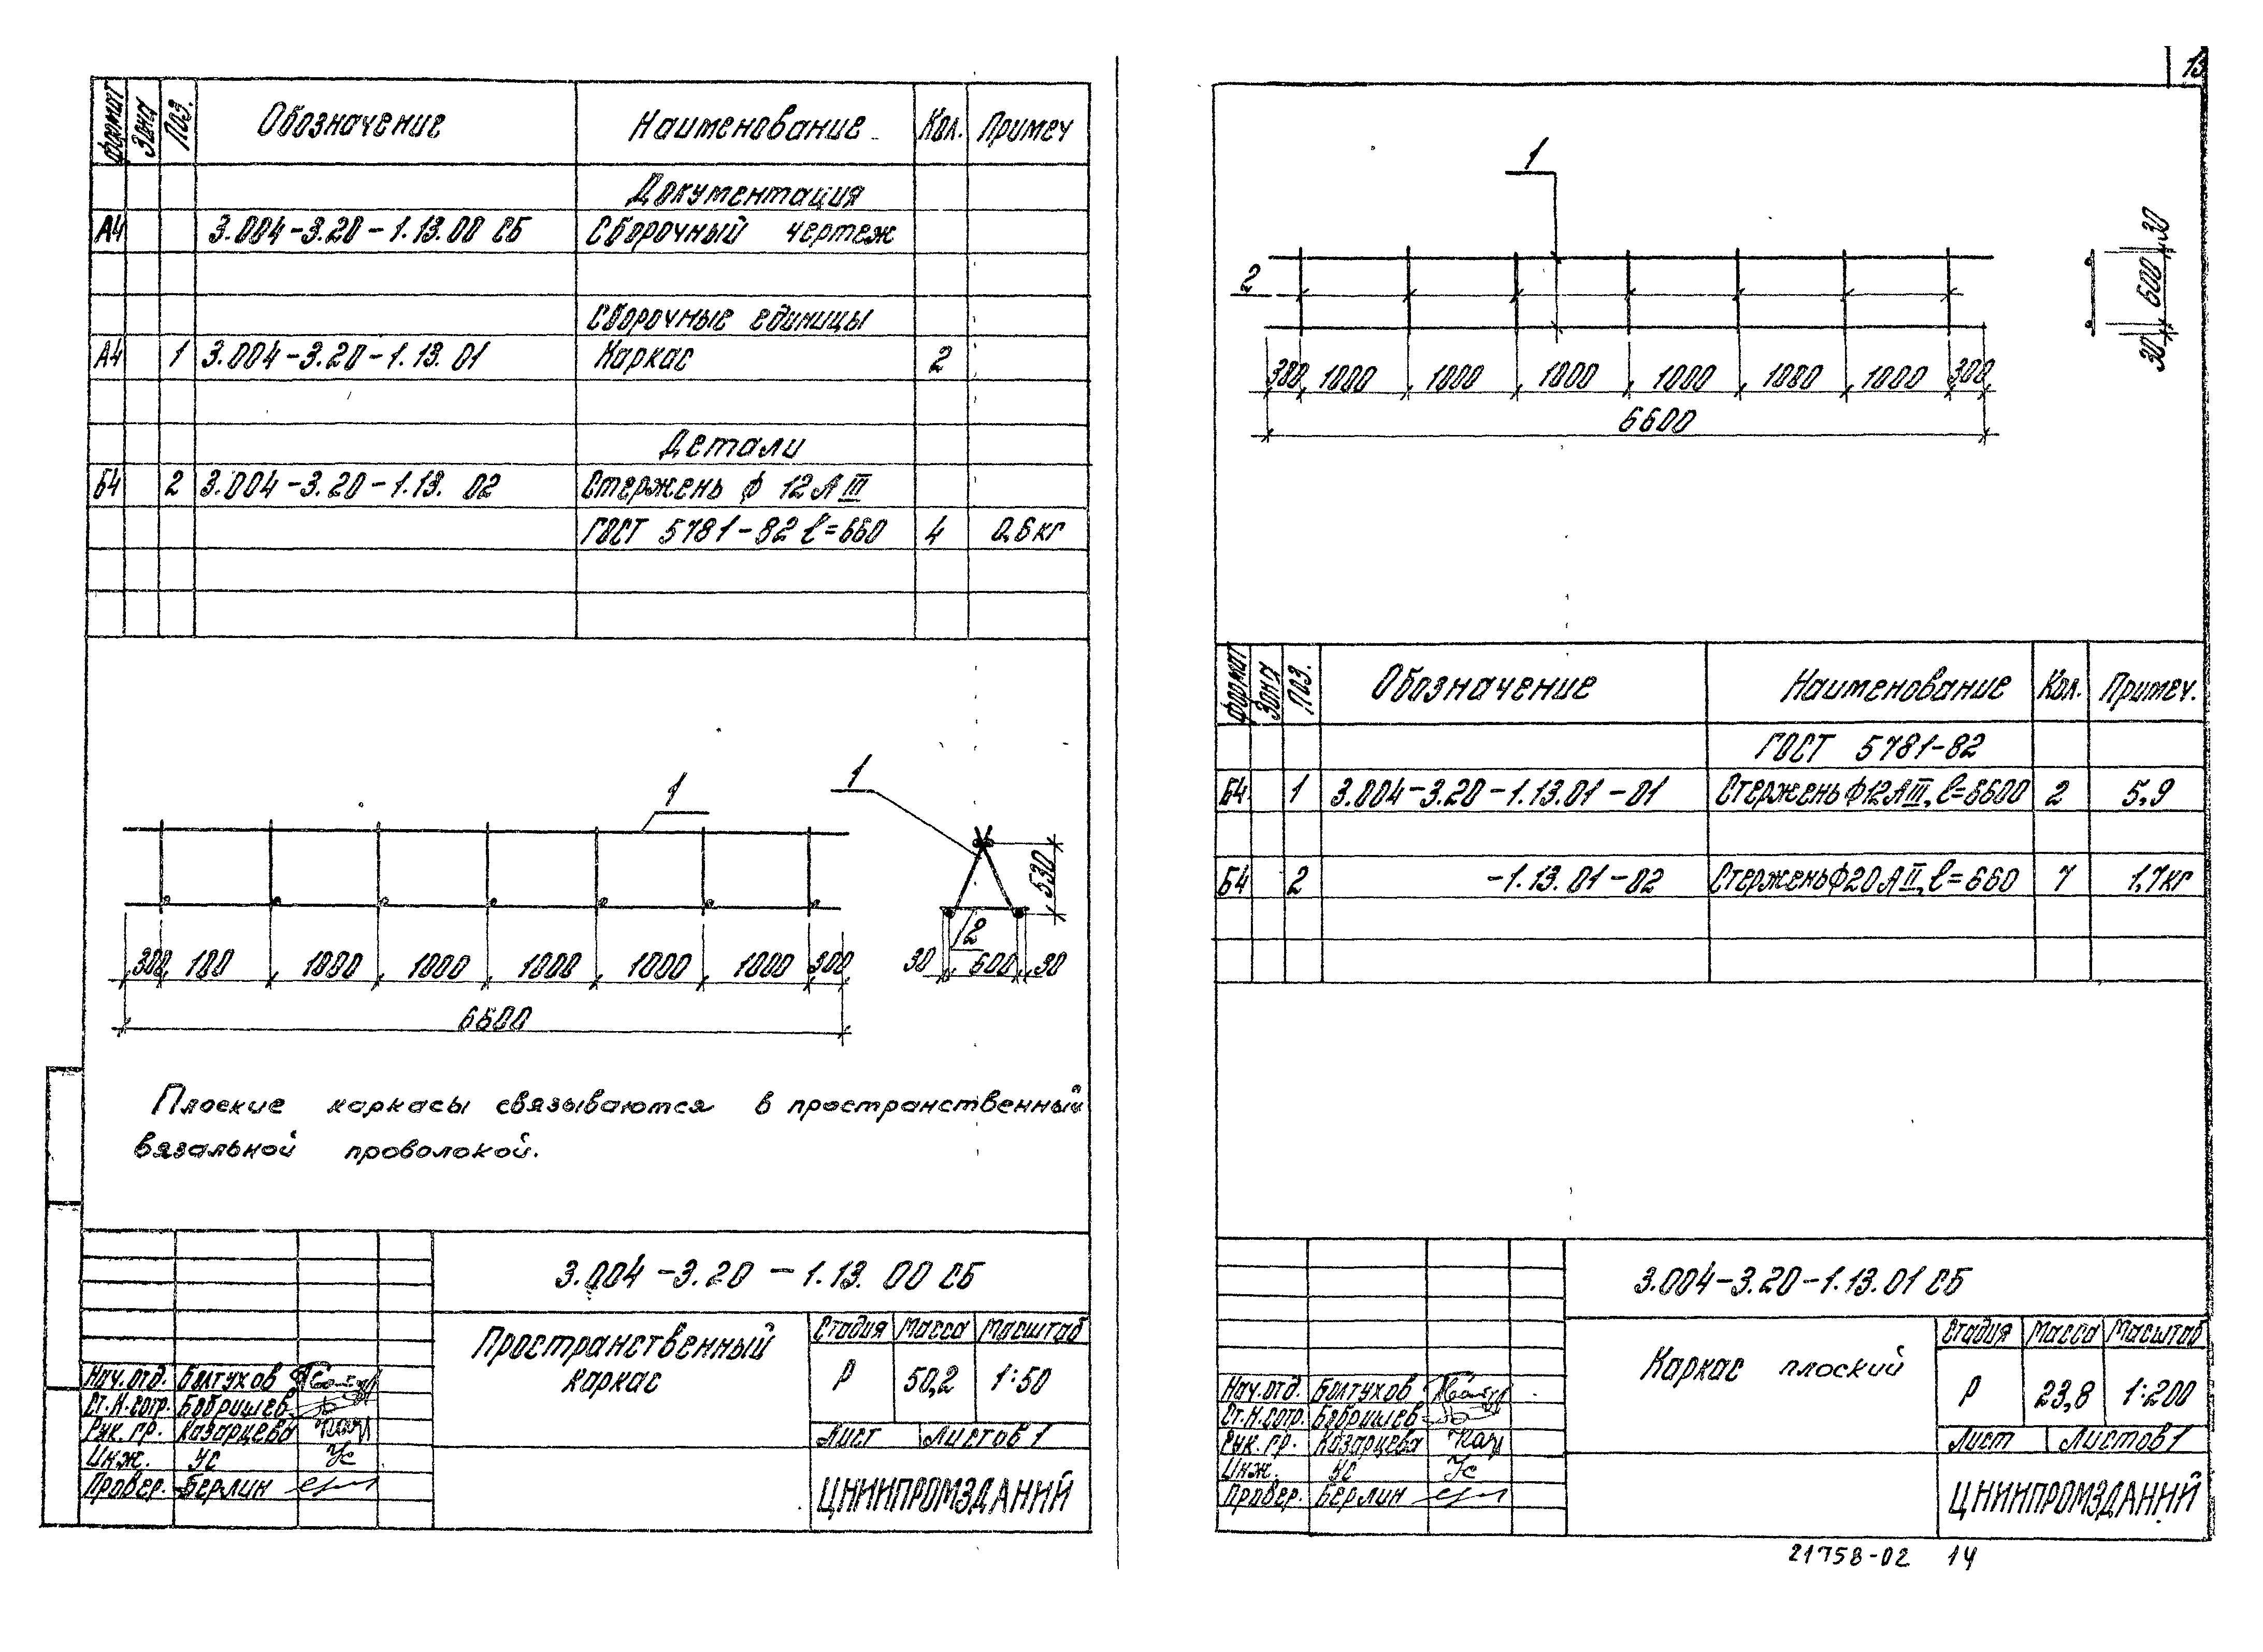 Формат Зона Поз. Обозначение Наименование Кол. Примеч
Документация
А4 3.004-3.20-1.13.00 СБ Сборочный чертеж
Сборочные единицы
А4 1 3.004-3.20-1.13.01 Каркас 2
Детали
Б4 2 3.004-3.20-1.13. 02 Стержень ф 12АIII
ГОСТ 5781-82 ℓ=660 4 0,6кг
1 1
530
2
300 100 1000 1000 1000 1000 1000 300 30 600 30
6600
Плоские каркасы связываются в пространственный
вязальной проволокой.
3.004-3.20-1.13. 00 СБ
Пространственный каркас
Стадия Масса Масштаб
Р 50,2 1:50
Лист Листов 1
ЦНИИПРОМЗДАНИЙ
Нач.отд. Болтухов
Ст.н.сотр. Бобришев
Рук. гр. Казарцева
Инж. Ус Ус
Провер. Берлин
13
1
2
30 600 30
300 1000 1000 1000 1000 1000 1000 300
6600
Формат Зона Поз. Обозначение Наименование Кол. Примеч.
ГОСТ 5781-82
Б4 1 3.004-3.20-1.13.01-01 Стержень ф12АIII, ℓ=6600 2 5,9
Б4 2 -1.13.01-02 Стержень ф20АII, ℓ=660 7 1,7кг
3.004-3.20-1.13.01 СБ
Каркас плоский
Стадия Масса Масштаб
Р 23,8 1:200
Лист Листов 1
ЦНИИПРОМЗДАНИЙ
Нач.отд. Болтухов
Ст.н.сотр. Бобришев
Рук. гр. Казарцева
Инж. Ус Ус
Провер. Берлин
21758-02 14